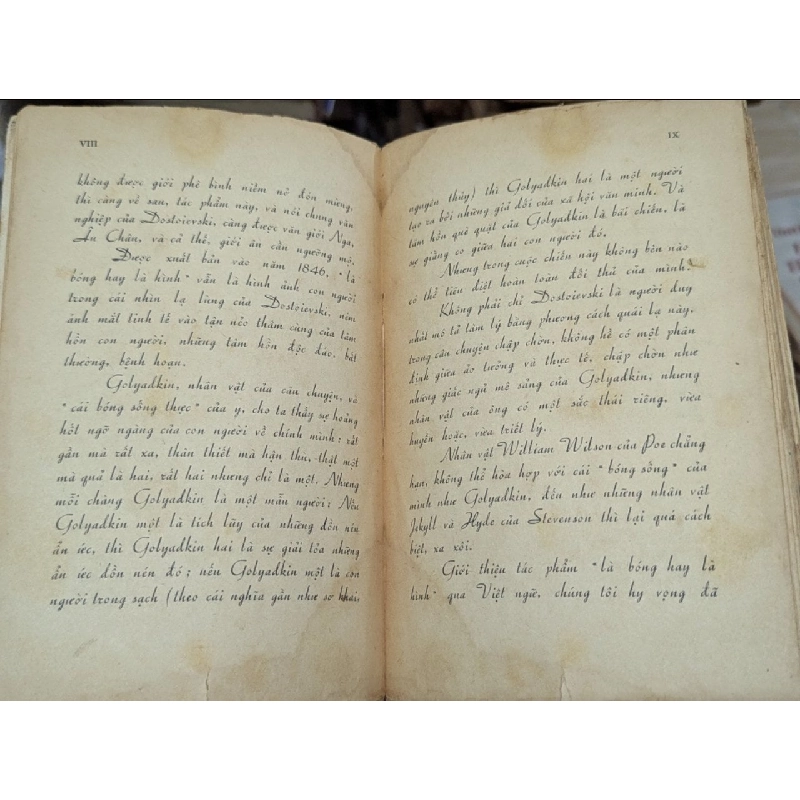 VIII
không được giới phê bình niềm nở đón mừng,
thì càng về sau, tác phẩm này, và nói chung văn
nghiệp của Dostoievski, càng được văn giới Nga,
Âu Châu, và cả thế giới ân cần ngưỡng mộ.
Được xuất bản vào năm 1846, "là
bóng hay là hình" vẫn là hình ảnh con người
trong cái nhìn lạ lùng của Dostoievski, ném
ánh mắt tinh tế vào tận nẻo thẳm cùng của tâm
hồn con người, những tâm hồn độc đáo, bất
thường, bệnh hoạn.
Golyadkin, nhân vật của câu chuyện, và
"cái bóng sống thực" của y, cho ta thấy sự hoảng
hốt ngỡ ngàng của con người về chính mình: rất
gần mà rất xa, thân thiết mà hận thù, thật một
mà quả là hai, rất hai nhưng chỉ là một. Nhưng
mỗi chàng Golyadkin là một mẫu người: Nếu
Golyadkin một là tích lũy của những dồn nén
ẩn ức, thì Golyadkin hai là sự giải tỏa những
ẩn ức dồn nén đó; nếu Golyadkin một là con
người trong sạch (theo cái nghĩa gần như sơ khai,
IX
nguyên thủy) thì Golyadkin hai là một người
tạo ra bởi những giả dối của xã hội văn minh. Và
tâm hồn què quặt của Golyadkin là bãi chiến, là
sự giằng co giữa hai con người đó.
Nhưng trong cuộc chiến này không bên nào
có thể tiêu diệt hoàn toàn đối thủ của mình.
Không phải chỉ Dostoievski là người duy
nhất mô tả tâm lý bằng phương cách quái lạ này,
trong câu chuyện chập chờn, không hề có một phân
định giữa ảo tưởng và thực tế, chập chờn như
những giấc ngủ mê sảng của Golyadkin, nhưng
nhân vật của ông có một sắc thái riêng, vừa
huyễn hoặc, vừa triết lý.
Nhân vật William Wilson của Poe chẳng
hạn, không thể hòa hợp với cái "bóng sống" của
mình như Golyadkin, đến như những nhân vật
Jekyll và Hyde của Stevenson thì lại quá cách
biệt, xa xôi.
Giới thiệu tác phẩm "là bóng hay là
hình" qua Việt ngữ, chúng tôi hy vọng đã